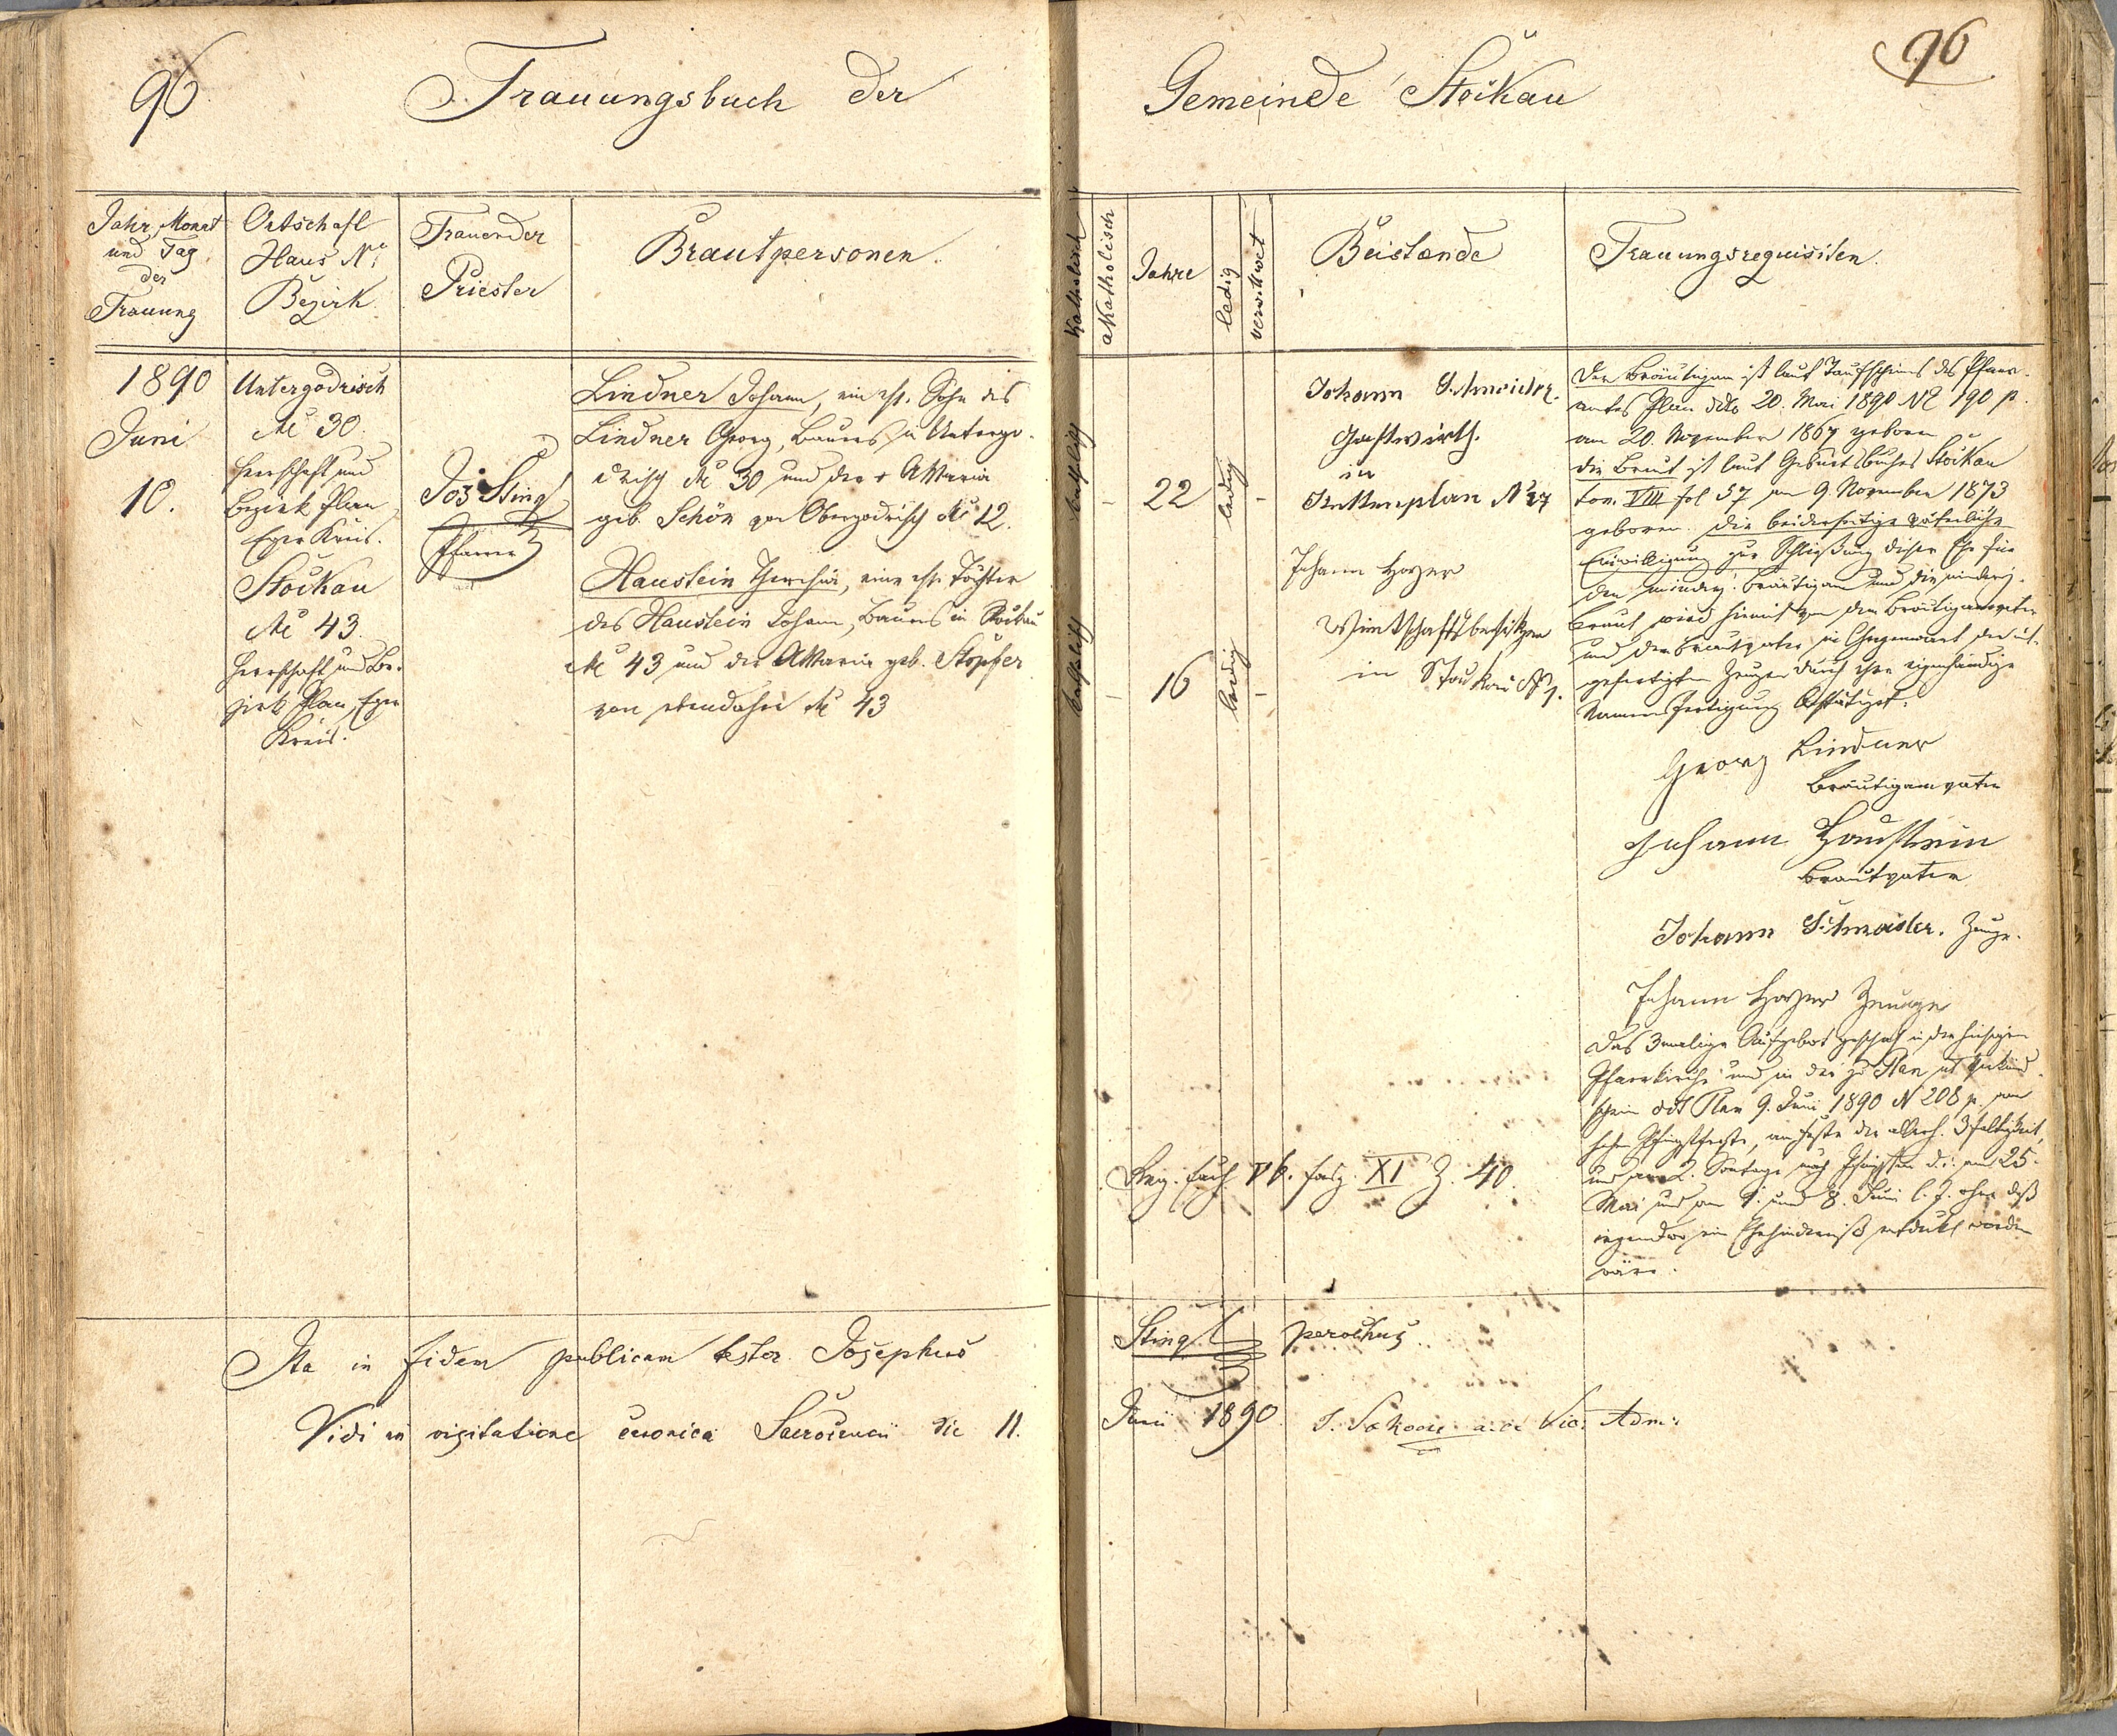 96
Trauungsbuch der
Gemeinde Stockau
96
Jahr, Monat
und Tag
der
Trauung
Ortschaft
Haus No
Bezirk
Trauender
Priester
Brautpersonen.
Katholisch
akatholisch
Jahre
ledig
verwittwet
Beistände
Trauungsrequisiten.
1890
Juni
10.
Untergodrisch
No 30.
Herrschaft und
Bezirk Plan,
Eger Kreis.
Stockau
No 43.
Herrschaft und Be-
zirk Plan, Eger
Kreis.
Jos Stingl
Pfarrer
Lindner Johann, ein ehl. Sohn des
Lindner Georg, Bauers in Untergo-
drisch No 30 und der + AMaria
geb. Schön von Obergodrisch No 12.
Haustein Theresia, eine ehl. Tochter
des Haustein Johann, Bauers in Stockau
No 43 und der AMaria geb. Stöpfer
von ebendaher No 43
katholisch
-
22
ledig
-
katholisch
-
16
ledig
-
Johann Schneider.
Gastwirth.
in
Kuttenplan No 27
Johann Hoyer
Wirtschaftsbesitzer
in Stockau
Der Bräutigam ist laut Taufscheins des Pfarr-
amtes Plan ddto 20. Mai 1890 NE 190 p.
am 20. November 1867 geboren
die Braut ist laut Geburtsbuches Stockau
tom. VIII fol 57 am 9. November 1873
geboren. Die beiderseitige väterliche
Einwilligung zur Schließung dieser Ehe für
den minderj. Bräutigam und die minderj.
Braut wird hiemit von dem Bräutigamvater
und dem Brautvater in Gegenwart der unt-
gefertigten Zeugen durch ihre eigenhändige
Namensfertigung bestätiget.
Georg Lindner
Bräutigamvater
Johann Haustein
Brautvater
Johann Schneider. Zeuge.
Johann Hoyer Zeuge
Das 3malige Aufgebot geschah in der hiesigen
Pfarrkirche und in der zu Plan ut Verkünd-
schein ddt Plan 9. Juni 1890 N 208 p. am
hohen Pfingstfeste, am Feste der allerh. 3faltigkeit,
und am 2. Sontage nach Pfingsten d. i. am 25.
Mai und am 1. und 8. Juni l. J. ohne daß
irgendwo ein Ehehinderniß entdeckt worden
wäre.
Reg. fach. Vb. fasz. XI Z. 40.
Ita in fidem publicam testor Josephus
Stingl parochus.
Vidi in visitatione canonica die 11.
Juni 1890. Vic. Adm.